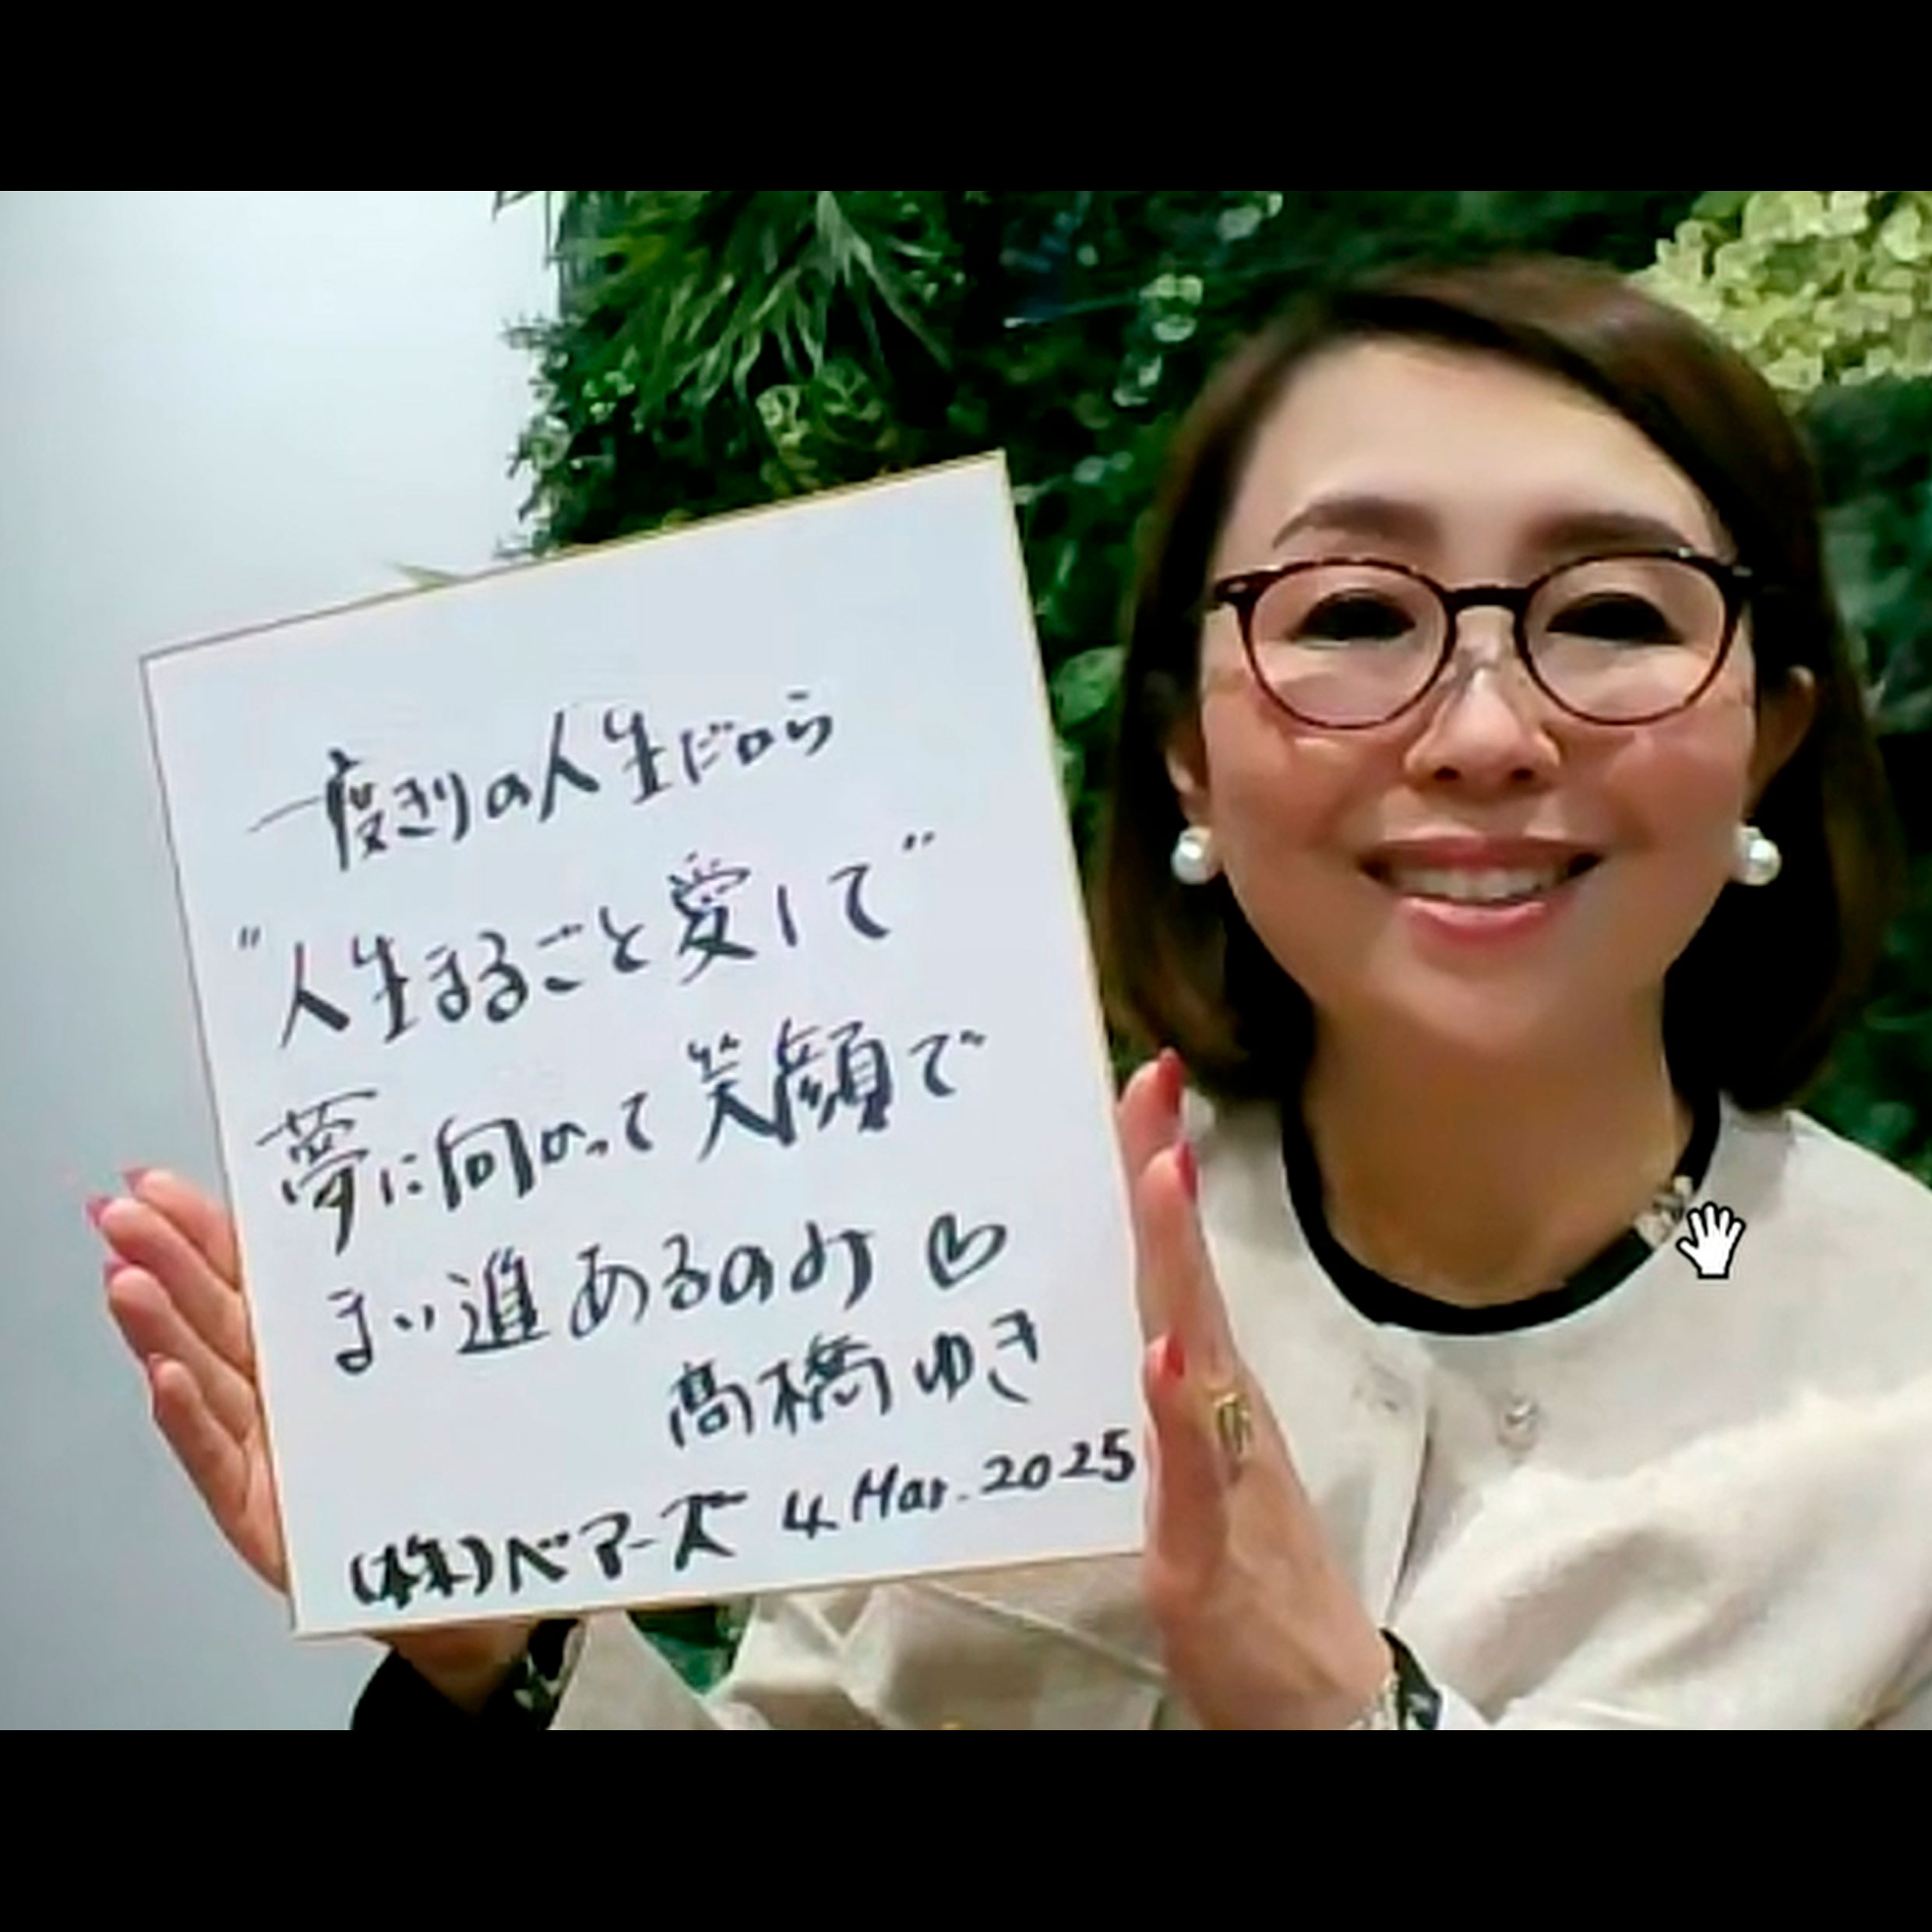 一度きりの人生だから
"人生まるごと愛して"
夢に向かって笑顔で
まい進あるのみ♡
髙橋ゆき
(株)ベアーズ 4 Mar. 2025